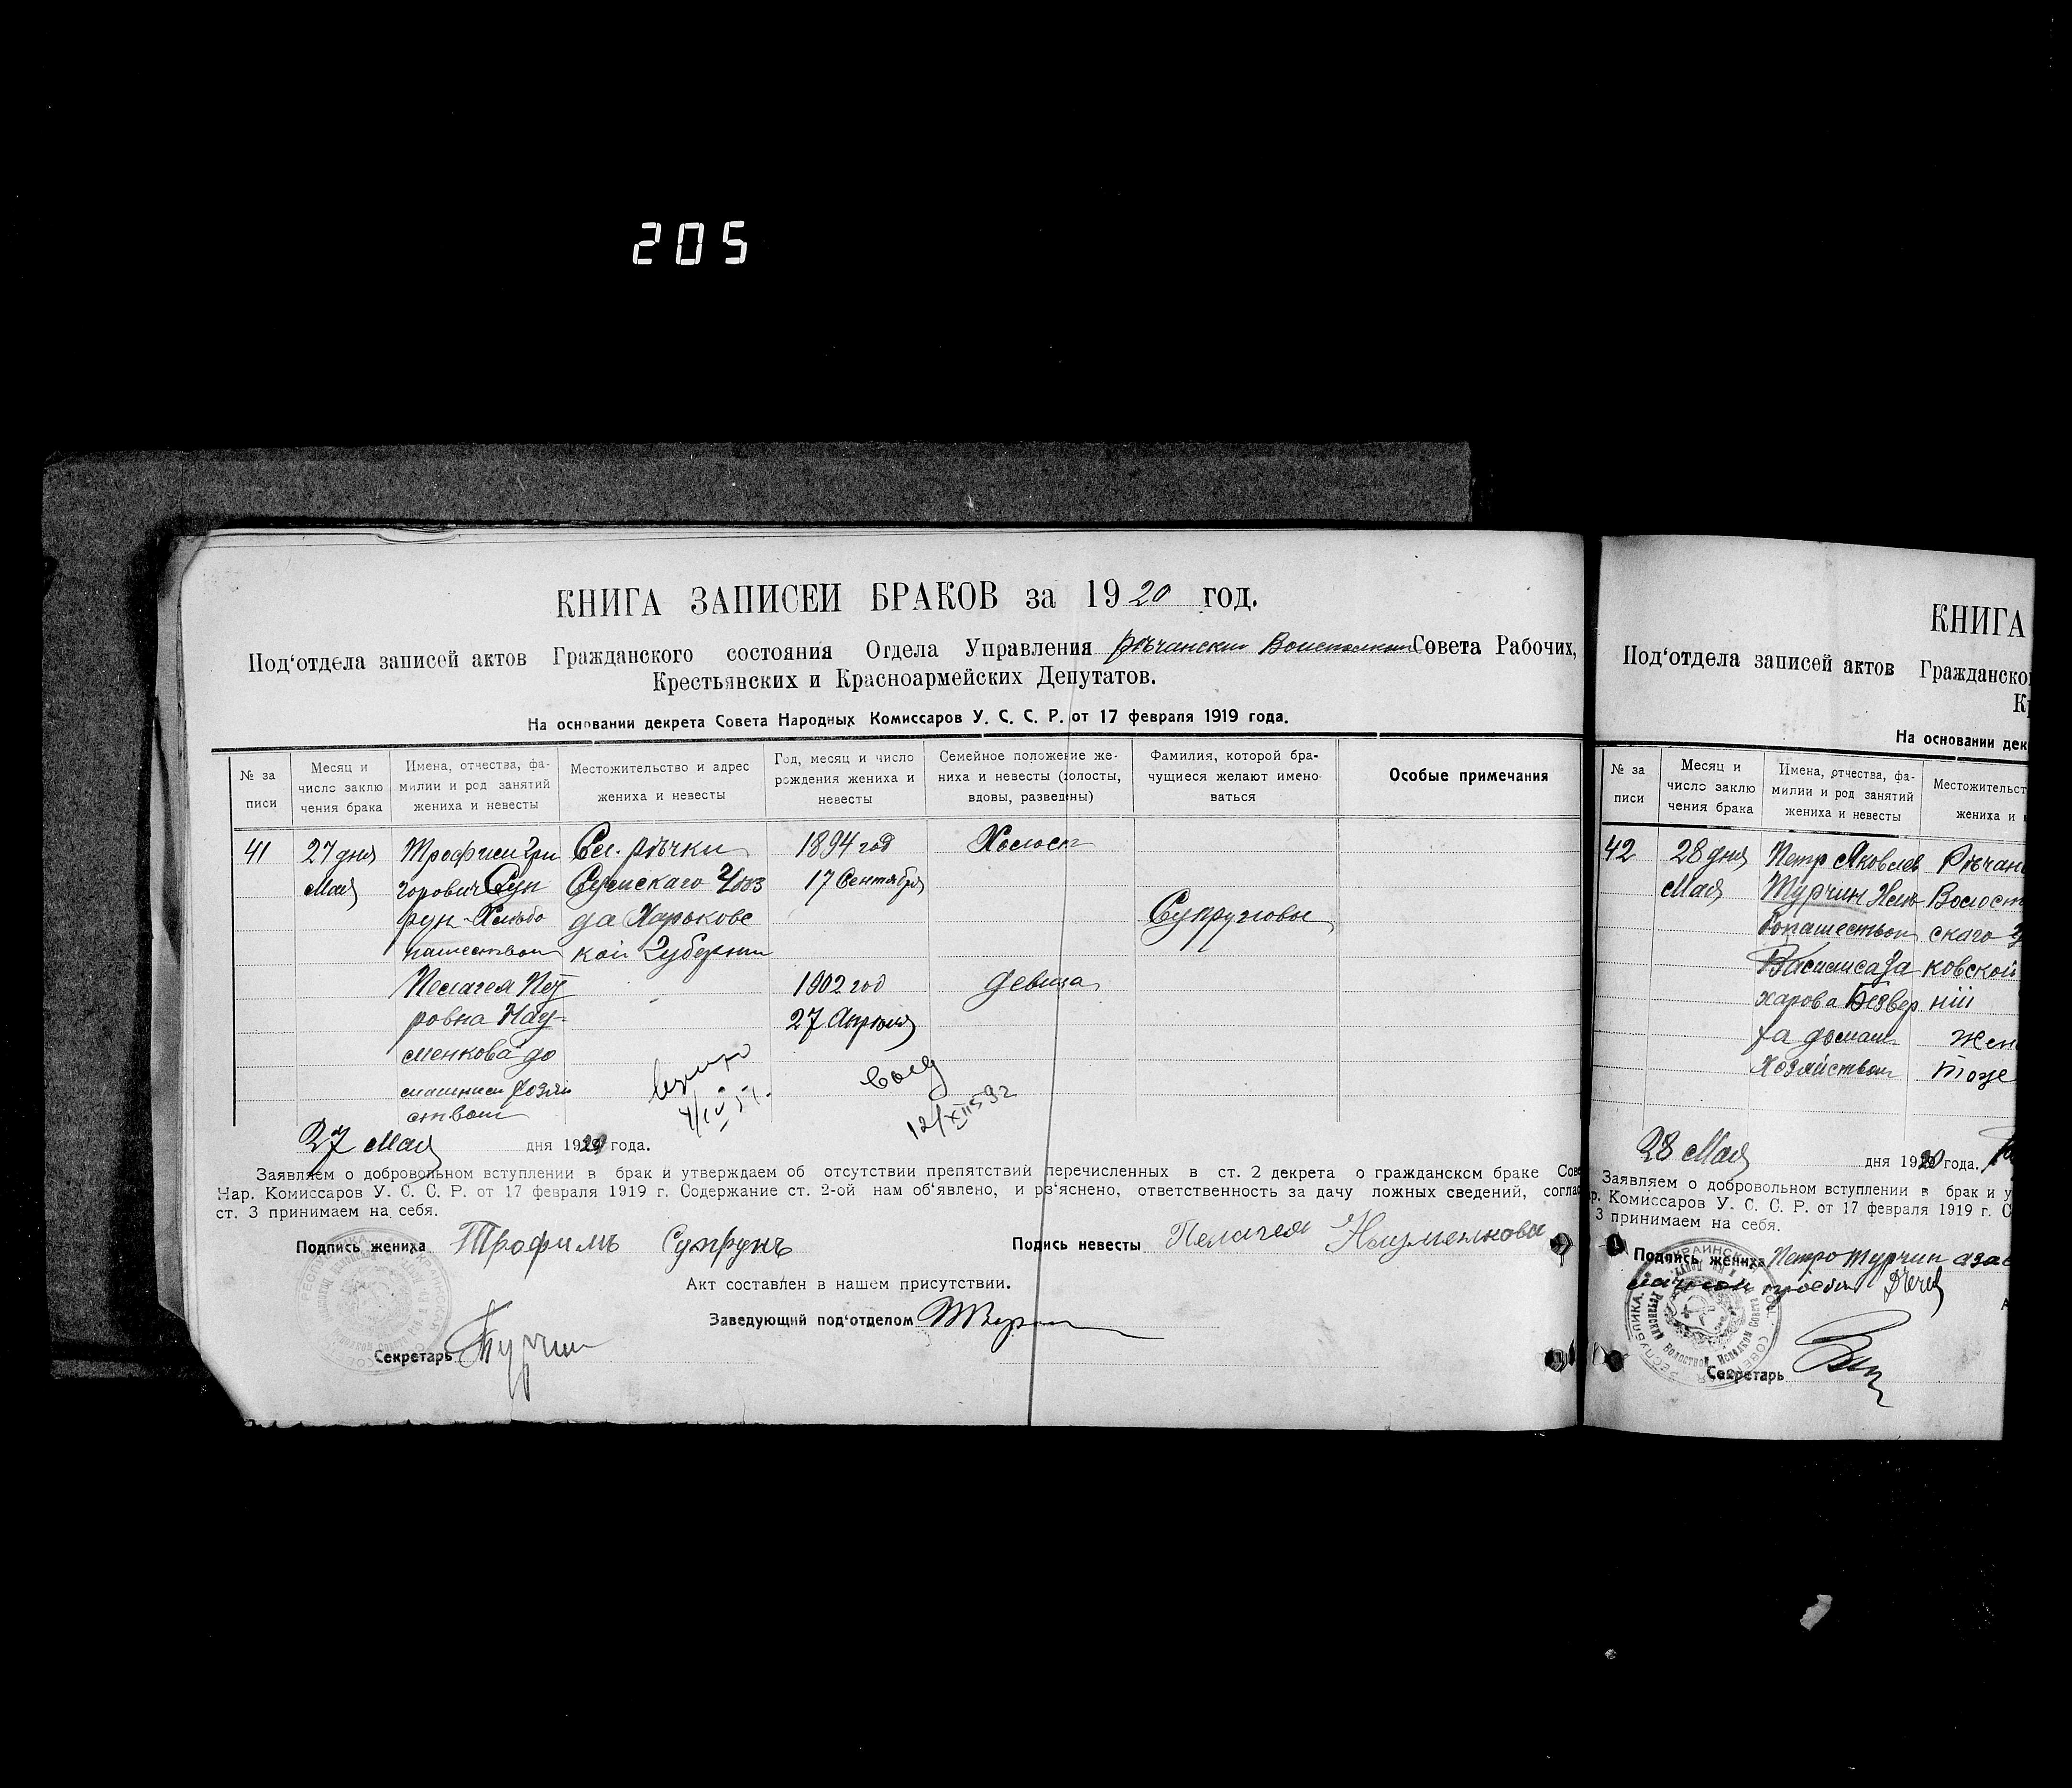 205
КНИГА ЗАПИСЕЙ БРАКОВ за 1920 год.
Под'отдела записей актов Гражданского состояния Отдела Управления Рѣчанский Волисполком Совета Рабочих,
Крестьянских и Красноармейских Депутатов.
На основании декрета Совета Народных Комиссаров У. С. С. Р. от 17 февраля 1919 года.
№ за писи
Месяц и число заклю чения брака
Имена, отчества, фа- милии и род занятий жениха и невесты
Местожительство и адрес жениха и невесты
Год, месяц и число рождения жениха и невесты
Семейное положение же- ниха и невесты (холосты, вдовы, разведены)
Фамилия, которой бра- чущиеся желают имено- ваться
Особые примечания
41 27 дня Трофим Гри Сл. Рѣчки 1894 год Холост
Мая горович Суп Сумскаго Уѣз 17 Сентября
рун - Хлѣбо да Харьковс Супруновы
пашеством кой Губернии
Пелагея Пет 1902 год девица
ровна Нау- 27 Апрѣля
менкова до
машним хозяй
ством
12/XII 592
27 Мая дня 1920 года.
Заявляем о добровольном вступлении в брак и утверждаем об отсутствии препятствий перечисленных в ст. 2 декрета о гражданском браке Сове
Нар. Комиссаров У. С. С. Р. от 17 февраля 1919 г. Содержание ст. 2-ой нам об'явлено, и рз'яснено, ответственность за дачу ложных сведений, соглас
ст. 3 принимаем на себя.
Подпись жениха Трофимъ Супрунъ Подись невесты Пелагея Науменкова
Акт составлен в нашем присутствии.
Заведующий под'отделом
Секретарь Турчин
КНИГА
Под'отдела записей актов Гражданско
К
На основании дек
№ за писи
Месяц и число заклю чения брака
Имена, отчества, фа- милии и род занятий жениха и невесты
Местожительст жениха и н
42 28 дня Петр Яковлев Рѣчан
Мая Турчин Хлѣ Волост
бопашеством скаго У
Василиса За ковской
харова Безвер нiи
ха домаш Жен
Хозяйством Тоже
28 Мая дня 1920 года.
Заявляем о добровольном вступлении в брак и у
р. Комиссаров У. С. С. Р. от 17 февраля 1919 г. С
3 принимаем на себя.
Подпись жениха Петро Турчин а за
Секретарь